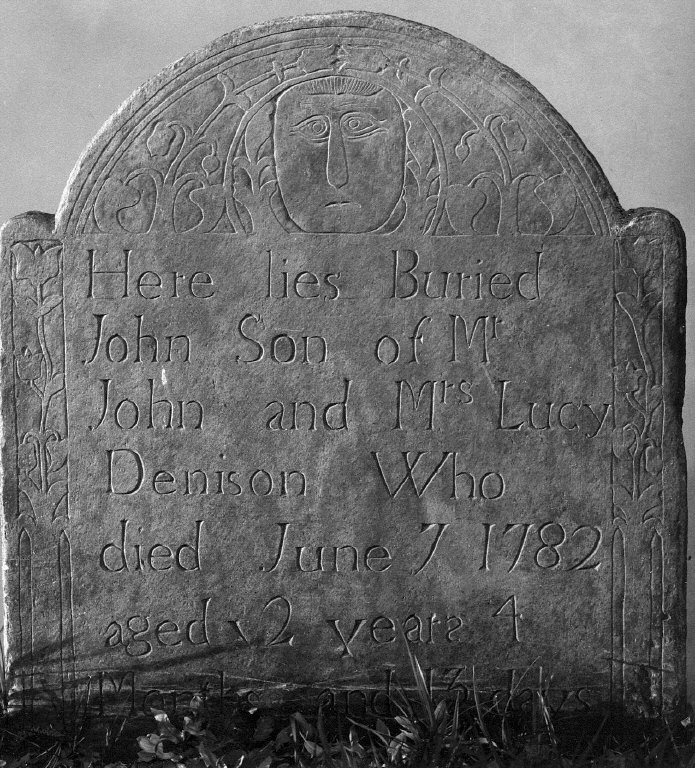 Here lies Buried
John Son of Mr
John and Mrs Lucy
Denison Who
died June 7 1782
aged 2 years 4
Months and 13 days